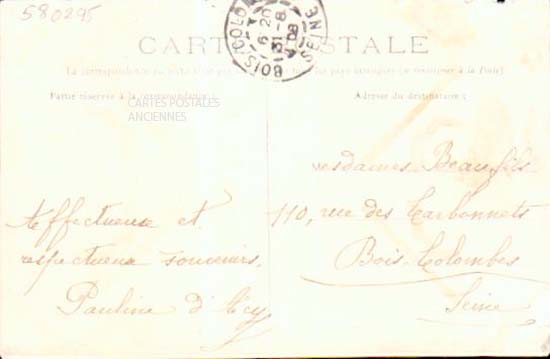 580295
BOIS-COLO
SEINE
6 20
31 -8
08
CARTE POSTALE
La correspondance au recto n'est pas pays étrangers (se renseigner à la Poste)
Partie réservée à la correspondance
Adresse du destinataire
CARTES POSTALES
ANCIENNES
Affectueux et
respectueux souvenirs.
Pauline d'
Mesdames Beaufils
110, rue des Carbonnets
Bois-Colombes
Seine